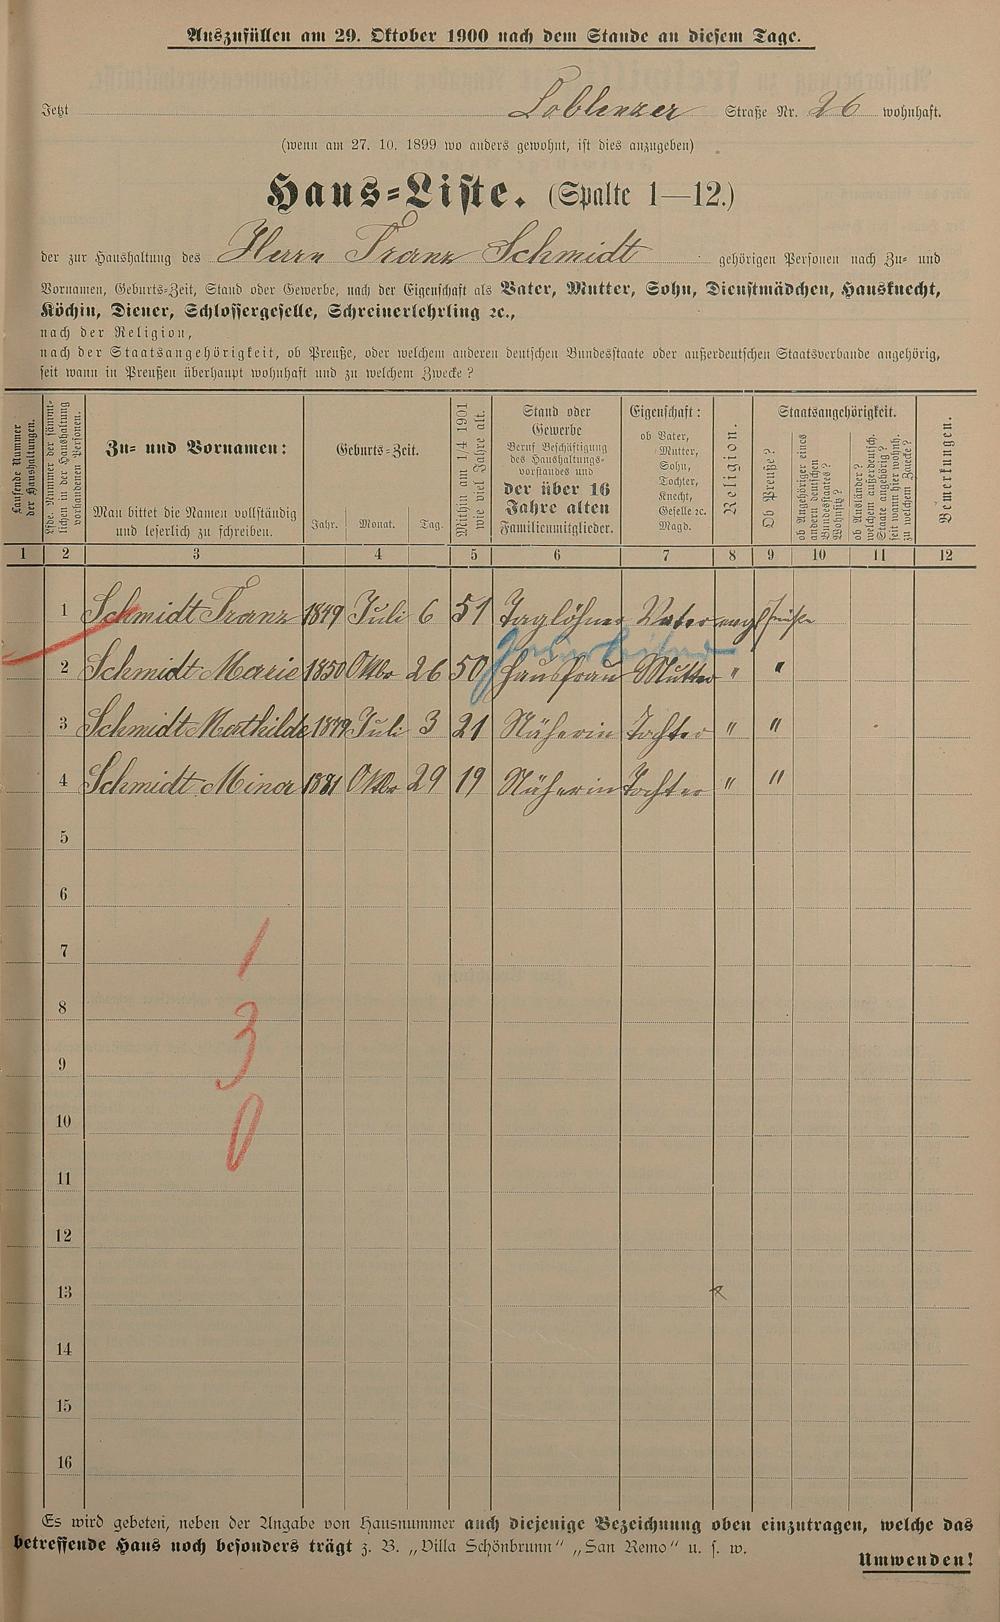 Auszufüllen am 29. Oktober 1900 nach dem Stande an diesem Tage.
Jetzt Coblenzer Straße Nr. 26 wohnhaft.
(wenn am 27. 10. 1899 wo anders gewohnt, ist dies anzugeben)
Haus-Liste. (Spalte 1—12.)
der zur Haushaltung des Herrn Franz Schmidt gehörigen Personen nach Zu- und
Vornamen, Geburts-Zeit, Stand oder Gewerbe, nach der Eigenschaft als Vater, Mutter, Sohn, Dienstmädchen, Hausknecht,
Köchin, Diener, Schlossergeselle, Schreinerlehrling ꝛc.,
nach der Religion,
nach der Staatsangehörigkeit, ob Preuße, oder welchem anderen deutschen Bundesstaate oder außerdeutschen Staatsverbande angehörig,
seit wann in Preußen überhaupt wohnhaft und zu welchem Zwecke?
Laufende Nummer
der Haushaltungen.
Lfde. Nummer der sämmt-
lichen in der Haushaltung
vorhandenen Personen.
Zu- und Vornamen:
Man bittet die Namen vollständig
und leserlich zu schreiben.
Geburts-Zeit.
Jahr. Monat. Tag.
Mithin am 1/4 1901
wie viel Jahre alt.
Stand oder
Gewerbe
Beruf Beschäftigung
des Haushaltungs-
vorstandes und
der über 16
Jahre alten
Familienmitglieder.
Eigenschaft:
ob Vater,
Mutter,
Sohn,
Tochter,
Knecht,
Geselle ꝛc.
Magd.
Religion.
Staatsangehörigkeit.
Ob Preuße?
ob Angehöriger eines
andern deutschen
Bundesstaates?
Wohnsitz?
ob Ausländer?
welchem außerdeutsch.
Staate angehörig?
seit wann hier wohnh.
zu welchem Zwecke?
Bemerkungen.
1 2 3 4 5 6 7 8 9 10 11 12
1 Schmidt Franz 1849 Juli 6 51 Taglöhner Vater evngl Preuße
2 Schmidt Marie 1850 Oktbr 26 50 Hausfrau Mutter " "
3 Schmidt Mathilde 1879 Juli 3 21 Näherin Tochter " "
4 Schmidt Mina 1881 Oktbr 29 19 Näherin Tochter " "
5
6
7
1
8
3
9
10
0
11
12
13
14
15
16
Es wird gebeten, neben der Angabe von Hausnummer auch diejenige Bezeichnung oben einzutragen, welche das
betreffende Haus noch besonders trägt z. B. „Villa Schönbrunn" „San Remo" u. s. w.
Umwenden!